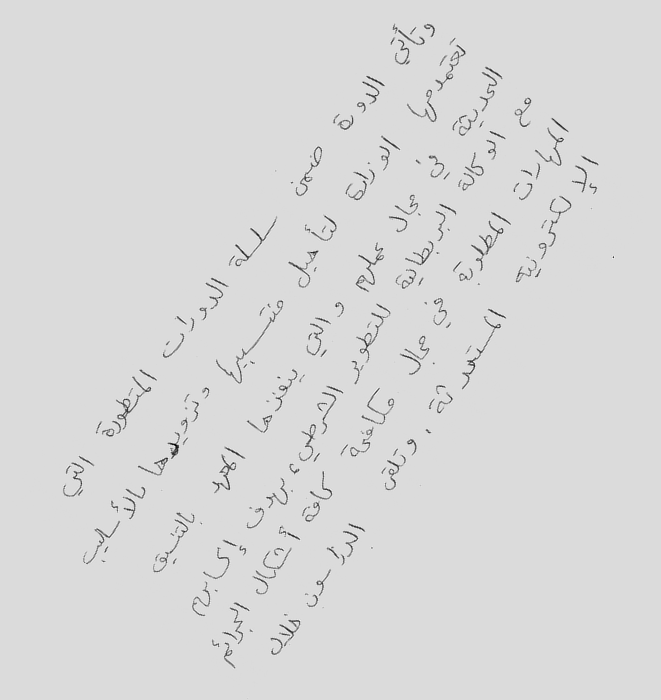 وتأتي الدورة ضمن سلسلة الدورات المتطورة التي
تعتمدها الوزارة لتأهيل منتسبيها وتزويدها بالأساليب
الحديثة في مجال عملهم والتي ينفذها المعهد بالتنسيق
مع الوكالة البريطانية للتطوير الشرطي، بهدف إكسابهم
المهارات المطلوبة في مجال مكافحة كافة أشكال الجرائم
الإلكترونية المستحدثة، وتلقى الدارسون خلال